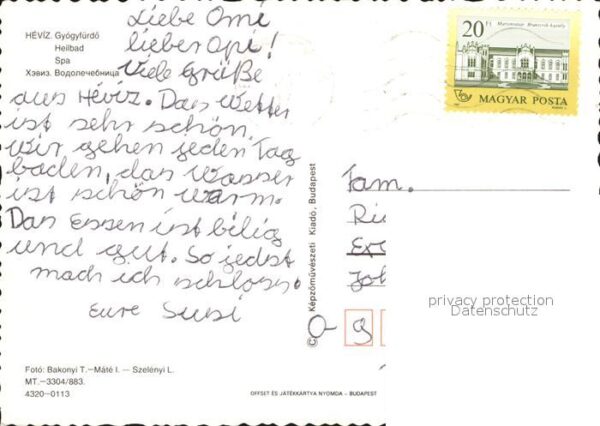 HÉVÍZ. Gyógyfürdő
Heilbad
Spa
Хэвиз. Водолечебница
Liebe Omi
lieber Opi!
Viele Grüße
aus Hévíz. Das Wetter
ist sehr schön.
Wir gehen jeden Tag
baden, das Wasser
ist schön warm.
Das Essen ist billig
und gut. So jedst
mach ich schloss.
Eure Susi
Foto: Bakonyi T.—Máté I. — Szelényi L.
MT.—3304/883.
4320—0113
© Képzőművészeti Kiadó, Budapest
OFFSET ÉS JÁTÉKKÁRTYA NYOMDA – BUDAPEST
20 Ft
MAGYAR POSTA
Fam.
privacy protection
Datenschutz